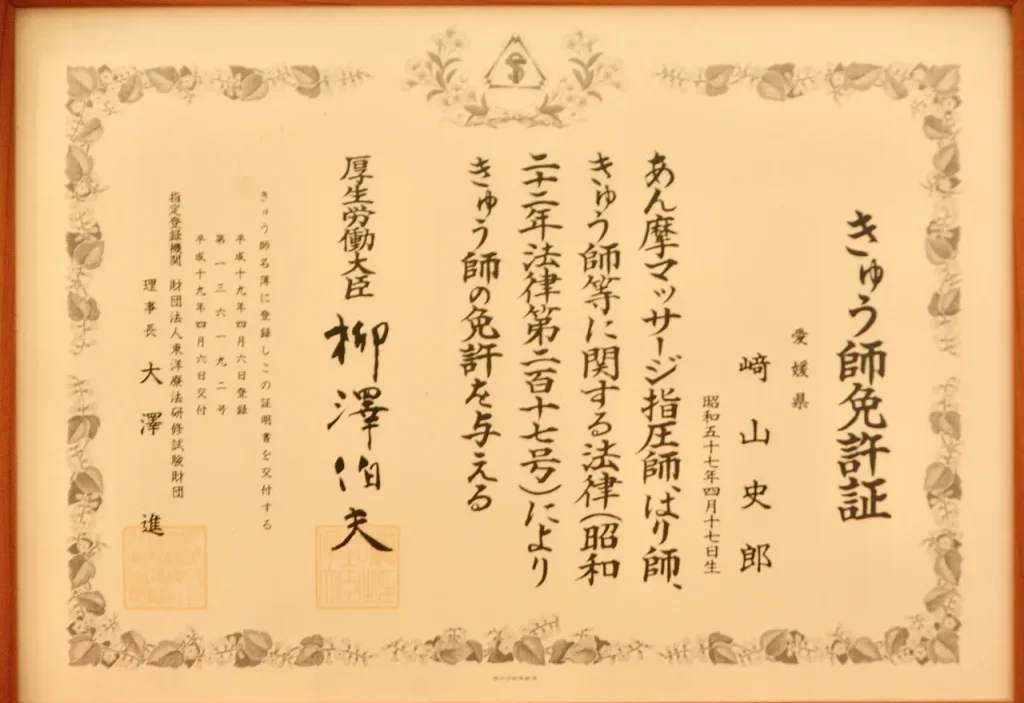 きゅう師免許証
愛媛県
﨑山史郎
昭和五十七年四月十七日生
あん摩マッサージ指圧師、はり師、
きゅう師等に関する法律(昭和
二十二年法律第二百十七号)により
きゅう師の免許を与える
厚生労働大臣 柳澤伯夫
きゅう師名簿に登録しこの証明書を交付する
平成十九年四月六日登録
第一三六一九二号
平成十九年四月六日交付
指定登録機関 財団法人東洋療法研修試験財団
理事長 大澤進